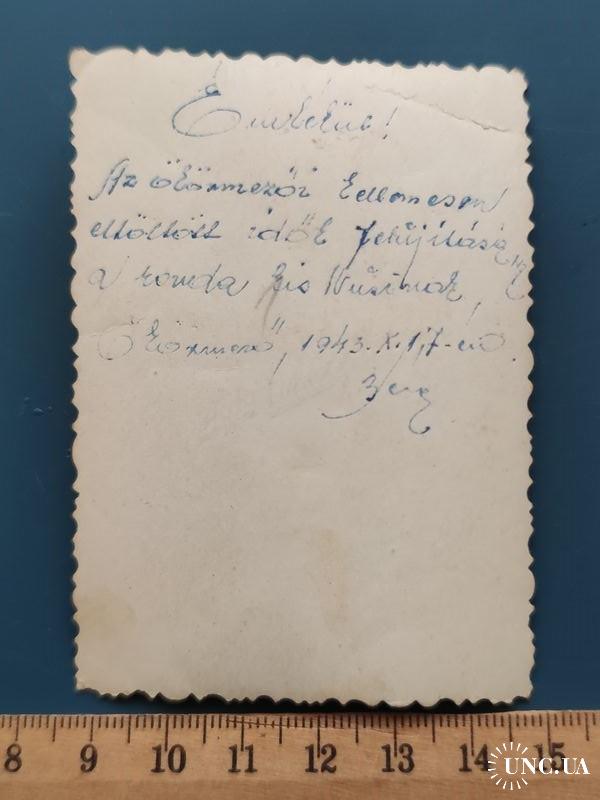 Emlékül!
Az ökörmezői kellemesen
eltöltött idők felújítására
a ronda kis Nusinak,
Ökörmező, 1943. X. 17-én
8 9 10 11 12 13 14 15
UNC.UA